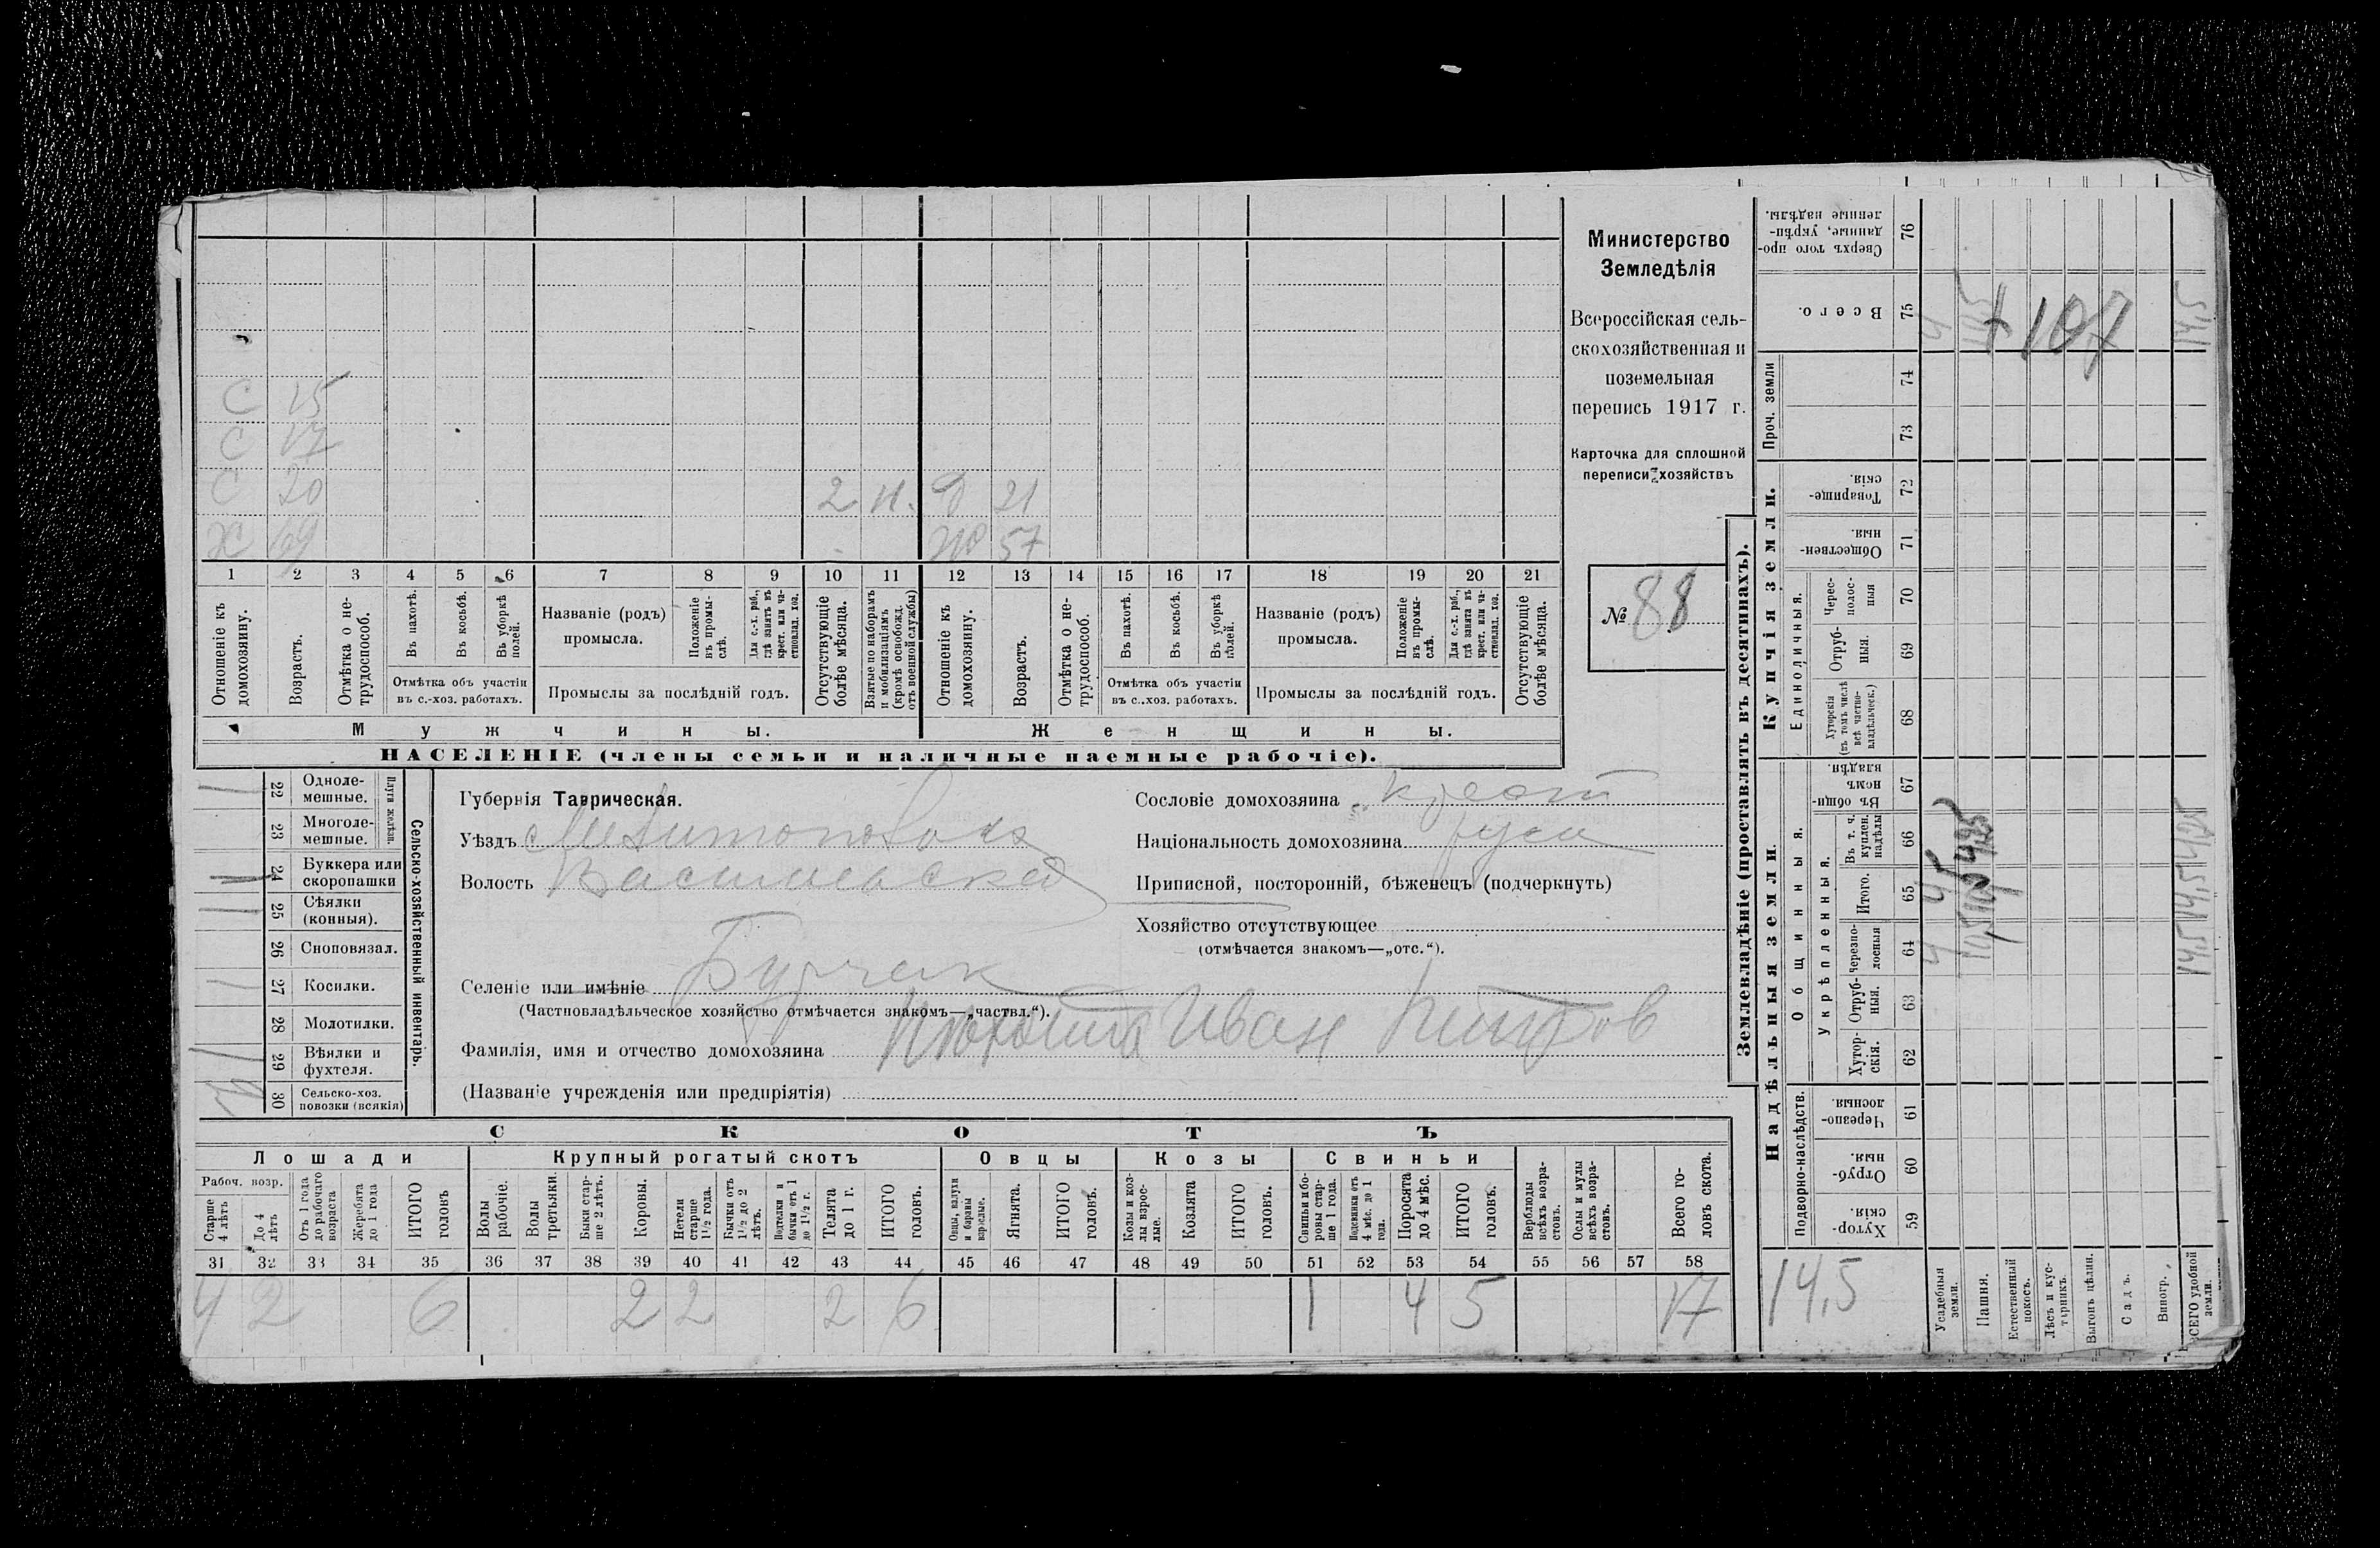 С 15
С 17
С 20 2 н. Д 21
Х 69 Ж 57
1 2 3 4 5 6 7 8 9 10 11 12 13 14 15 16 17 18 19 20 21
Отношеніе къ домохозяину.
Возрастъ.
Отмѣтка о не-трудоспособ.
Въ пахотѣ.
Въ косьбѣ.
Въ уборкѣ полей.
Отмѣтка объ участіи
въ с.-хоз. работахъ.
Названіе (родъ)
промысла.
Положеніе въ промы-слѣ.
Для с.-х. раб., гдѣ занятъ въ крест. или ча-стновлад. хоз.
Промыслы за послѣдній годъ.
Отсутствующіе болѣе мѣсяца.
Взятые по наборамъ и мобилизаціямъ (кромѣ освобожд. отъ военной службы)
Отношеніе къ домохозяину.
Возрастъ.
Отмѣтка о не-трудоспособ.
Въ пахотѣ.
Въ косьбѣ.
Въ уборкѣ полей.
Отмѣтка объ участіи
въ с..хоз. работахъ.
Названіе (родъ)
промысла.
Положеніе въ промы-слѣ.
Для с.-х. раб., гдѣ занята въ крест. или ча-стновлад. хоз.
Промыслы за послѣдній годъ.
Отсутствующіе болѣе мѣсяца.
Мужчины. Женщины.
НАСЕЛЕНІЕ (члены семьи и наличные наемные рабочіе).
Министерство
Земледѣлія
Всероссійская сель-
скохозяйственная и
поземельная
перепись 1917 г.
Карточка для сплошной
переписи хозяйствъ
№ 88
Сельско-хозяйственный инвентарь.
Плуги желѣзн.
22 Одноле-мешные. 1
23 Многоле-мешные.
24 Буккера или скоропашки 1
25 Сѣялки (конныя). 1
26 Сноповязал.
27 Косилки. 1
28 Молотилки.
29 Вѣялки и фухтеля. 1
30 Сельско-хоз. повозки (всякія)
Губернія Таврическая.
Уѣздъ Мелитопольск
Волость Васильевская
Селеніе или имѣніе Бурчак
(Частновладѣльческое хозяйство отмѣчается знакомъ—„частвл.“).
Фамилія, имя и отчество домохозяина Иван Петров
(Названіе учрежденія или предпріятія)
Сословіе домохозяина крест
Національность домохозяина русск
Приписной, посторонній, бѣженецъ (подчеркнуть)
Хозяйство отсутствующее
(отмѣчается знакомъ—„отс.“).
СКОТЪ
Лошади Крупный рогатый скотъ Овцы Козы Свиньи
Рабоч. возр.
Старше 4 лѣтъ
До 4 лѣтъ
Отъ 1 года до рабочаго возраста
Жеребята до 1 года
ИТОГО головъ
Волы рабочіе.
Волы третьяки.
Быки стар-ше 2 лѣтъ.
Коровы.
Нетели старше 1½ года.
Бычки отъ 1½ до 2 лѣтъ.
Подтелки и бычки отъ 1 до 1½ г.
Телята до 1 г.
ИТОГО головъ.
Овцы, валухи и бараны взрослые.
Ягнята.
ИТОГО головъ.
Козы и коз-лы взрос-лые.
Козлята
ИТОГО головъ.
Свиньи и бо-ровы стар-ше 1 года.
Подсвинки отъ 4 мѣс. до 1 года.
Поросята до 4 мѣс.
ИТОГО головъ.
Верблюды всѣхъ возра-стовъ.
Ослы и мулы всѣхъ возра-стовъ.
Всего го-ловъ скота.
31 32 33 34 35 36 37 38 39 40 41 42 43 44 45 46 47 48 49 50 51 52 53 54 55 56 57 58
4 2 6 2 2 2 6 1 4 5 17
Землевладѣніе (проставлять въ десятинахъ).
Надѣльныя земли.
Купчія земли.
Проч. земли
Подворно-наслѣдств.
Общинныя.
Укрѣпленныя.
Единоличныя.
Хутор-скія. 59
Отруб-ныя. 60
Черезпо-лосныя. 61
Хутор-скія. 62
Отруб-ныя. 63
Черезпо-лосныя 64
Итого. 65
Въ т. ч. куплен. надѣлы 66
Въ общи-номъ владѣн. 67
Хуторскія (въ томъ числѣ всѣ частно-владѣльческ.) 68
Отруб-ныя. 69
Черес-полос-ныя 70
Обществен-ныя. 71
Товарище-скія. 72
73
74
Всего. 75
Сверхъ того про-данные, укрѣп-ленные надѣлы. 76
Усадебныя земли. 4 4 4
Пашня. 10,5 10,5 10,5
Естественный покосъ.
Лѣсъ и кус-тарникъ.
Выгонъ цѣлин.
Садъ.
Виногр.
ВСЕГО удобной земли. 14,5 14,5 14,5
107
14,5